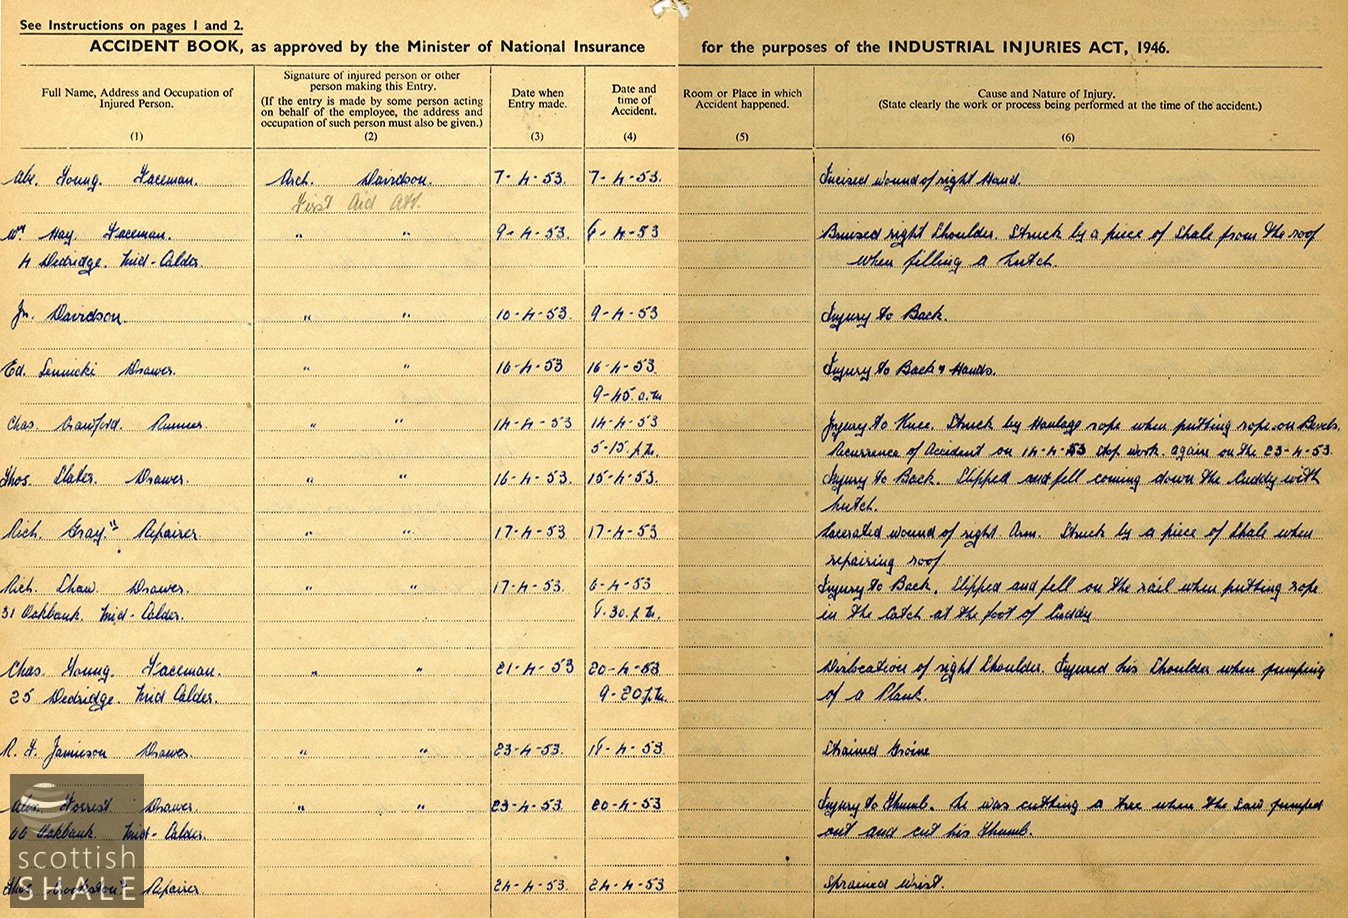 See Instructions on pages 1 and 2.
ACCIDENT BOOK, as approved by the Minister of National Insurance for the purposes of the INDUSTRIAL INJURIES ACT, 1946.
Full Name, Address and Occupation of
Injured Person.
(1)
Signature of injured person or other
person making this Entry.
(If the entry is made by some person acting
on behalf of the employee, the address and
occupation of such person must also be given.)
(2)
Date when
Entry made.
(3)
Date and
time of
Accident.
(4)
Room or Place in which
Accident happened.
(5)
Cause and Nature of Injury.
(State clearly the work or process being performed at the time of the accident.)
(6)
Alex. Young. Faceman. Arch. Davidson. 7-4-53. 7-4-53. Incised wound of right Hand.
First Aid Att.
Wm Hay. Faceman. " " 9-4-53. 8-4-53 Bruised right Shoulder. Struck by a piece of Shale from the roof
4 Dedridge. Mid-Calder. when filling a hutch.
Jn. Davidson. " " 10-4-53. 9-4-53. Injury to Back.
Ed. Drawer. " " 16-4-53 16-4-53. Injury to Back & Hands.
9-45 a.m
Chas. Crawford. Runner. " " 14-4-53 14-4-53 Injury to Knee. Struck by Haulage rope when putting rope on Bevels.
5-15. p.m. Recurrence of Accident on 14-4-53 stop work. again on the 23-4-53.
Thos. Slater. Drawer. " " 16-4-53. 15-4-53. Injury to Back. Slipped and fell coming down the Cuddy with
hutch.
Rich. Gray. Repairer. " " 17-4-53 17-4-53. Lacerated wound of right Arm. Struck by a piece of Shale when
repairing roof
Rich. Shaw. Drawer. " " 17-4-53. 6-4-53 Injury to Back. Slipped and fell on the rail when putting rope
31 Oakbank. Mid-Calder. 8-30. p.m. in the Catch at the foot of Cuddy.
Chas. Young. Faceman. " " 21-4-53 20-4-53 Dislocation of right Shoulder. Injured his Shoulder when jumping
25 Dedridge. Mid Calder. 9-20 p.m. of a Plank.
R. F. Jamieson Drawer. " " 23-4-53. 18-4-53. Strained Groine
Alex. Forrest Drawer. " " 23-4-53. 20-4-53 Injury to Thumb. he was cutting a tree when the saw jumped
Oakbank. Mid-Calder. out and cut his Thumb.
Repairer. 24-4-53. 24-4-53. Sprained Wrist.
scottish
SHALE